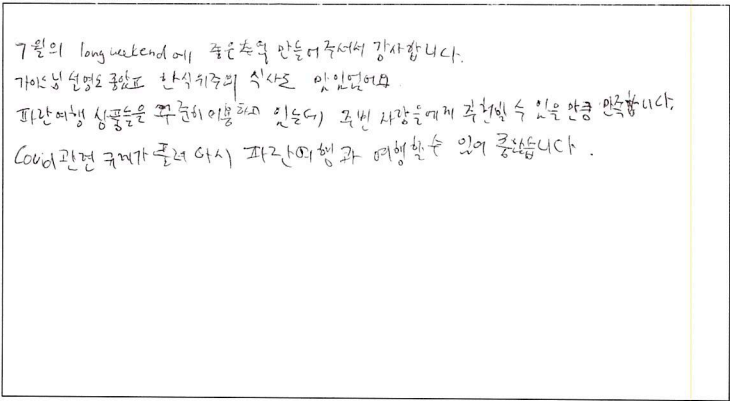 7월의 long weekend에 좋은추억 만들어주셔서 감사합니다.
가이드님 설명도 좋았고 한식위주의 식사도 맛있었어요
파란여행 상품들을 꾸준히 이용하고 있는데, 주변 사람들에게 추천할 수 있을 만큼 만족합니다.
Covid관련 규제가 풀려 다시 파란여행과 여행할 수 있어 좋았습니다.